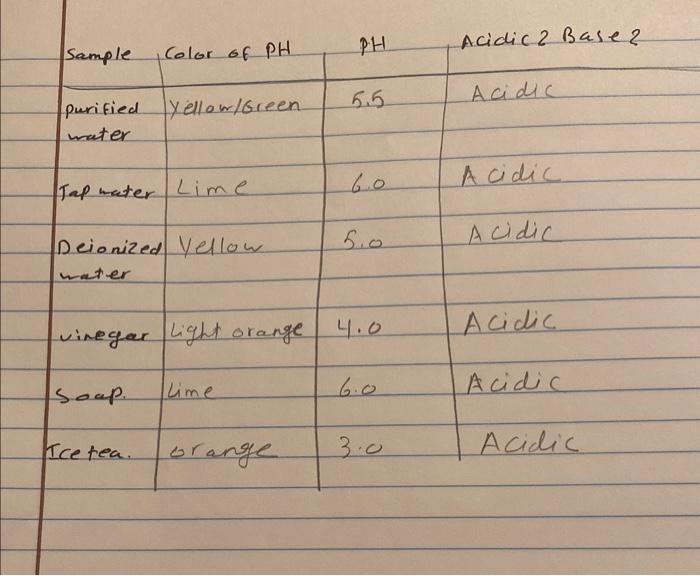 Sample Color of PH PH Acidic? Base?
purified Yellow/Green 5.5 Acidic
water
Tap water Lime 6.0 Acidic
Deionized Yellow 5.0 Acidic
water
vinegar Light orange 4.0 Acidic
Soap. Lime 6.0 Acidic
Ice tea. orange 3.0 Acidic